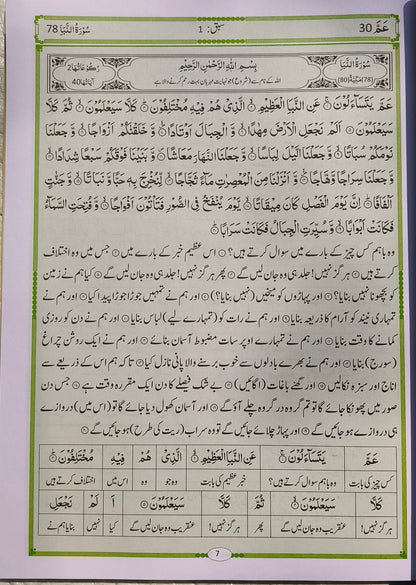 عَمَّ 30
سبق: 1
سُوْرَةُ النَّبَاِ 78
سُوْرَةُ النَّبَاِ
(78) مَكِّيَّةٌ (80)
بِسْمِ اللّٰهِ الرَّحْمٰنِ الرَّحِيْمِ
اللہ کے نام سے (شروع) جو نہایت مہربان بہت رحم کرنے والا ہے
رُكُوْعَاتُهَا 2
اٰيَاتُهَا 40
عَمَّ يَتَسَآءَلُوْنَ ۝ عَنِ النَّبَاِ الْعَظِيْمِ ۝ الَّذِيْ هُمْ فِيْهِ مُخْتَلِفُوْنَ ۝ كَلَّا سَيَعْلَمُوْنَ ۝ ثُمَّ كَلَّا
سَيَعْلَمُوْنَ ۝ اَلَمْ نَجْعَلِ الْاَرْضَ مِهٰدًا ۝ وَّ الْجِبَالَ اَوْتَادًا ۝ وَّ خَلَقْنٰكُمْ اَزْوَاجًا ۝ وَّ جَعَلْنَا
نَوْمَكُمْ سُبَاتًا ۝ وَّ جَعَلْنَا الَّيْلَ لِبَاسًا ۝ وَّ جَعَلْنَا النَّهَارَ مَعَاشًا ۝ وَّ بَنَيْنَا فَوْقَكُمْ سَبْعًا شِدَادًا ۝
وَّ جَعَلْنَا سِرَاجًا وَّهَّاجًا ۝ وَّ اَنْزَلْنَا مِنَ الْمُعْصِرٰتِ مَآءً ثَجَّاجًا ۝ لِّنُخْرِجَ بِهٖ حَبًّا وَّ نَبَاتًا ۝ وَّ جَنّٰتٍ
اَلْفَافًا ۝ اِنَّ يَوْمَ الْفَصْلِ كَانَ مِيْقَاتًا ۝ يَّوْمَ يُنْفَخُ فِي الصُّوْرِ فَتَاْتُوْنَ اَفْوَاجًا ۝ وَّ فُتِحَتِ السَّمَآءُ
فَكَانَتْ اَبْوَابًا ۝ وَّ سُيِّرَتِ الْجِبَالُ فَكَانَتْ سَرَابًا ۝
وہ باہم کس چیز کے بارے میں سوال کرتے ہیں؟ ۝ اس عظیم خبر کے بارے میں ۝ جس میں وہ اختلاف
کرتے ہیں ۝ ہرگز نہیں! جلد ہی وہ جان لیں گے ۝ پھر ہرگز نہیں! جلد ہی وہ جان لیں گے ۝ کیا ہم نے زمین
کو بچھونا نہیں بنایا؟ ۝ اور پہاڑوں کو میخیں (نہیں بنایا؟) ۝ اور ہم نے تمہیں جوڑا جوڑا پیدا کیا ۝ اور ہم نے
تمہاری نیند کو آرام کا ذریعہ بنایا ۝ اور ہم نے رات کو (تمہارے لیے) لباس بنایا ۝ اور ہم نے دن کو روزی
کمانے کا وقت بنایا ۝ اور ہم نے تمہارے اوپر سات مضبوط آسمان بنائے ۝ اور ہم نے ایک روشن چراغ
(سورج) بنایا ۝ اور ہم نے بھرے بادلوں سے خوب برسنے والا پانی نازل کیا ۝ تاکہ ہم اس کے ذریعے سے
اناج اور سبزہ نکالیں ۝ اور گھنے باغات (اگائیں) ۝ بے شک فیصلے کا دن ایک مقررہ وقت ہے ۝ جس دن
صور میں پھونکا جائے گا تو تم گروہ در گروہ چلے آؤ گے ۝ اور آسمان کھول دیا جائے گا تو (اس میں) دروازے
ہی دروازے ہو جائیں گے ۝ اور پہاڑ چلائے جائیں گے تو وہ سراب (ریت کی طرح) ہو جائیں گے ۝
عَمَّ يَتَسَآءَلُوْنَ ۝ عَنِ النَّبَاِ الْعَظِيْمِ ۝ الَّذِيْ هُمْ فِيْهِ مُخْتَلِفُوْنَ ۝
کس چیز کی بابت وہ باہم سوال کرتے ہیں؟ خبر عظیم کی بابت وہ جو وہ اس میں اختلاف کرتے ہیں
كَلَّا سَيَعْلَمُوْنَ ۝ ثُمَّ كَلَّا سَيَعْلَمُوْنَ ۝ اَ لَمْ نَجْعَلِ
ہرگز نہیں! عنقریب وہ جان لیں گے پھر ہرگز نہیں! عنقریب وہ جان لیں گے کیا نہیں بنایا ہم نے
7